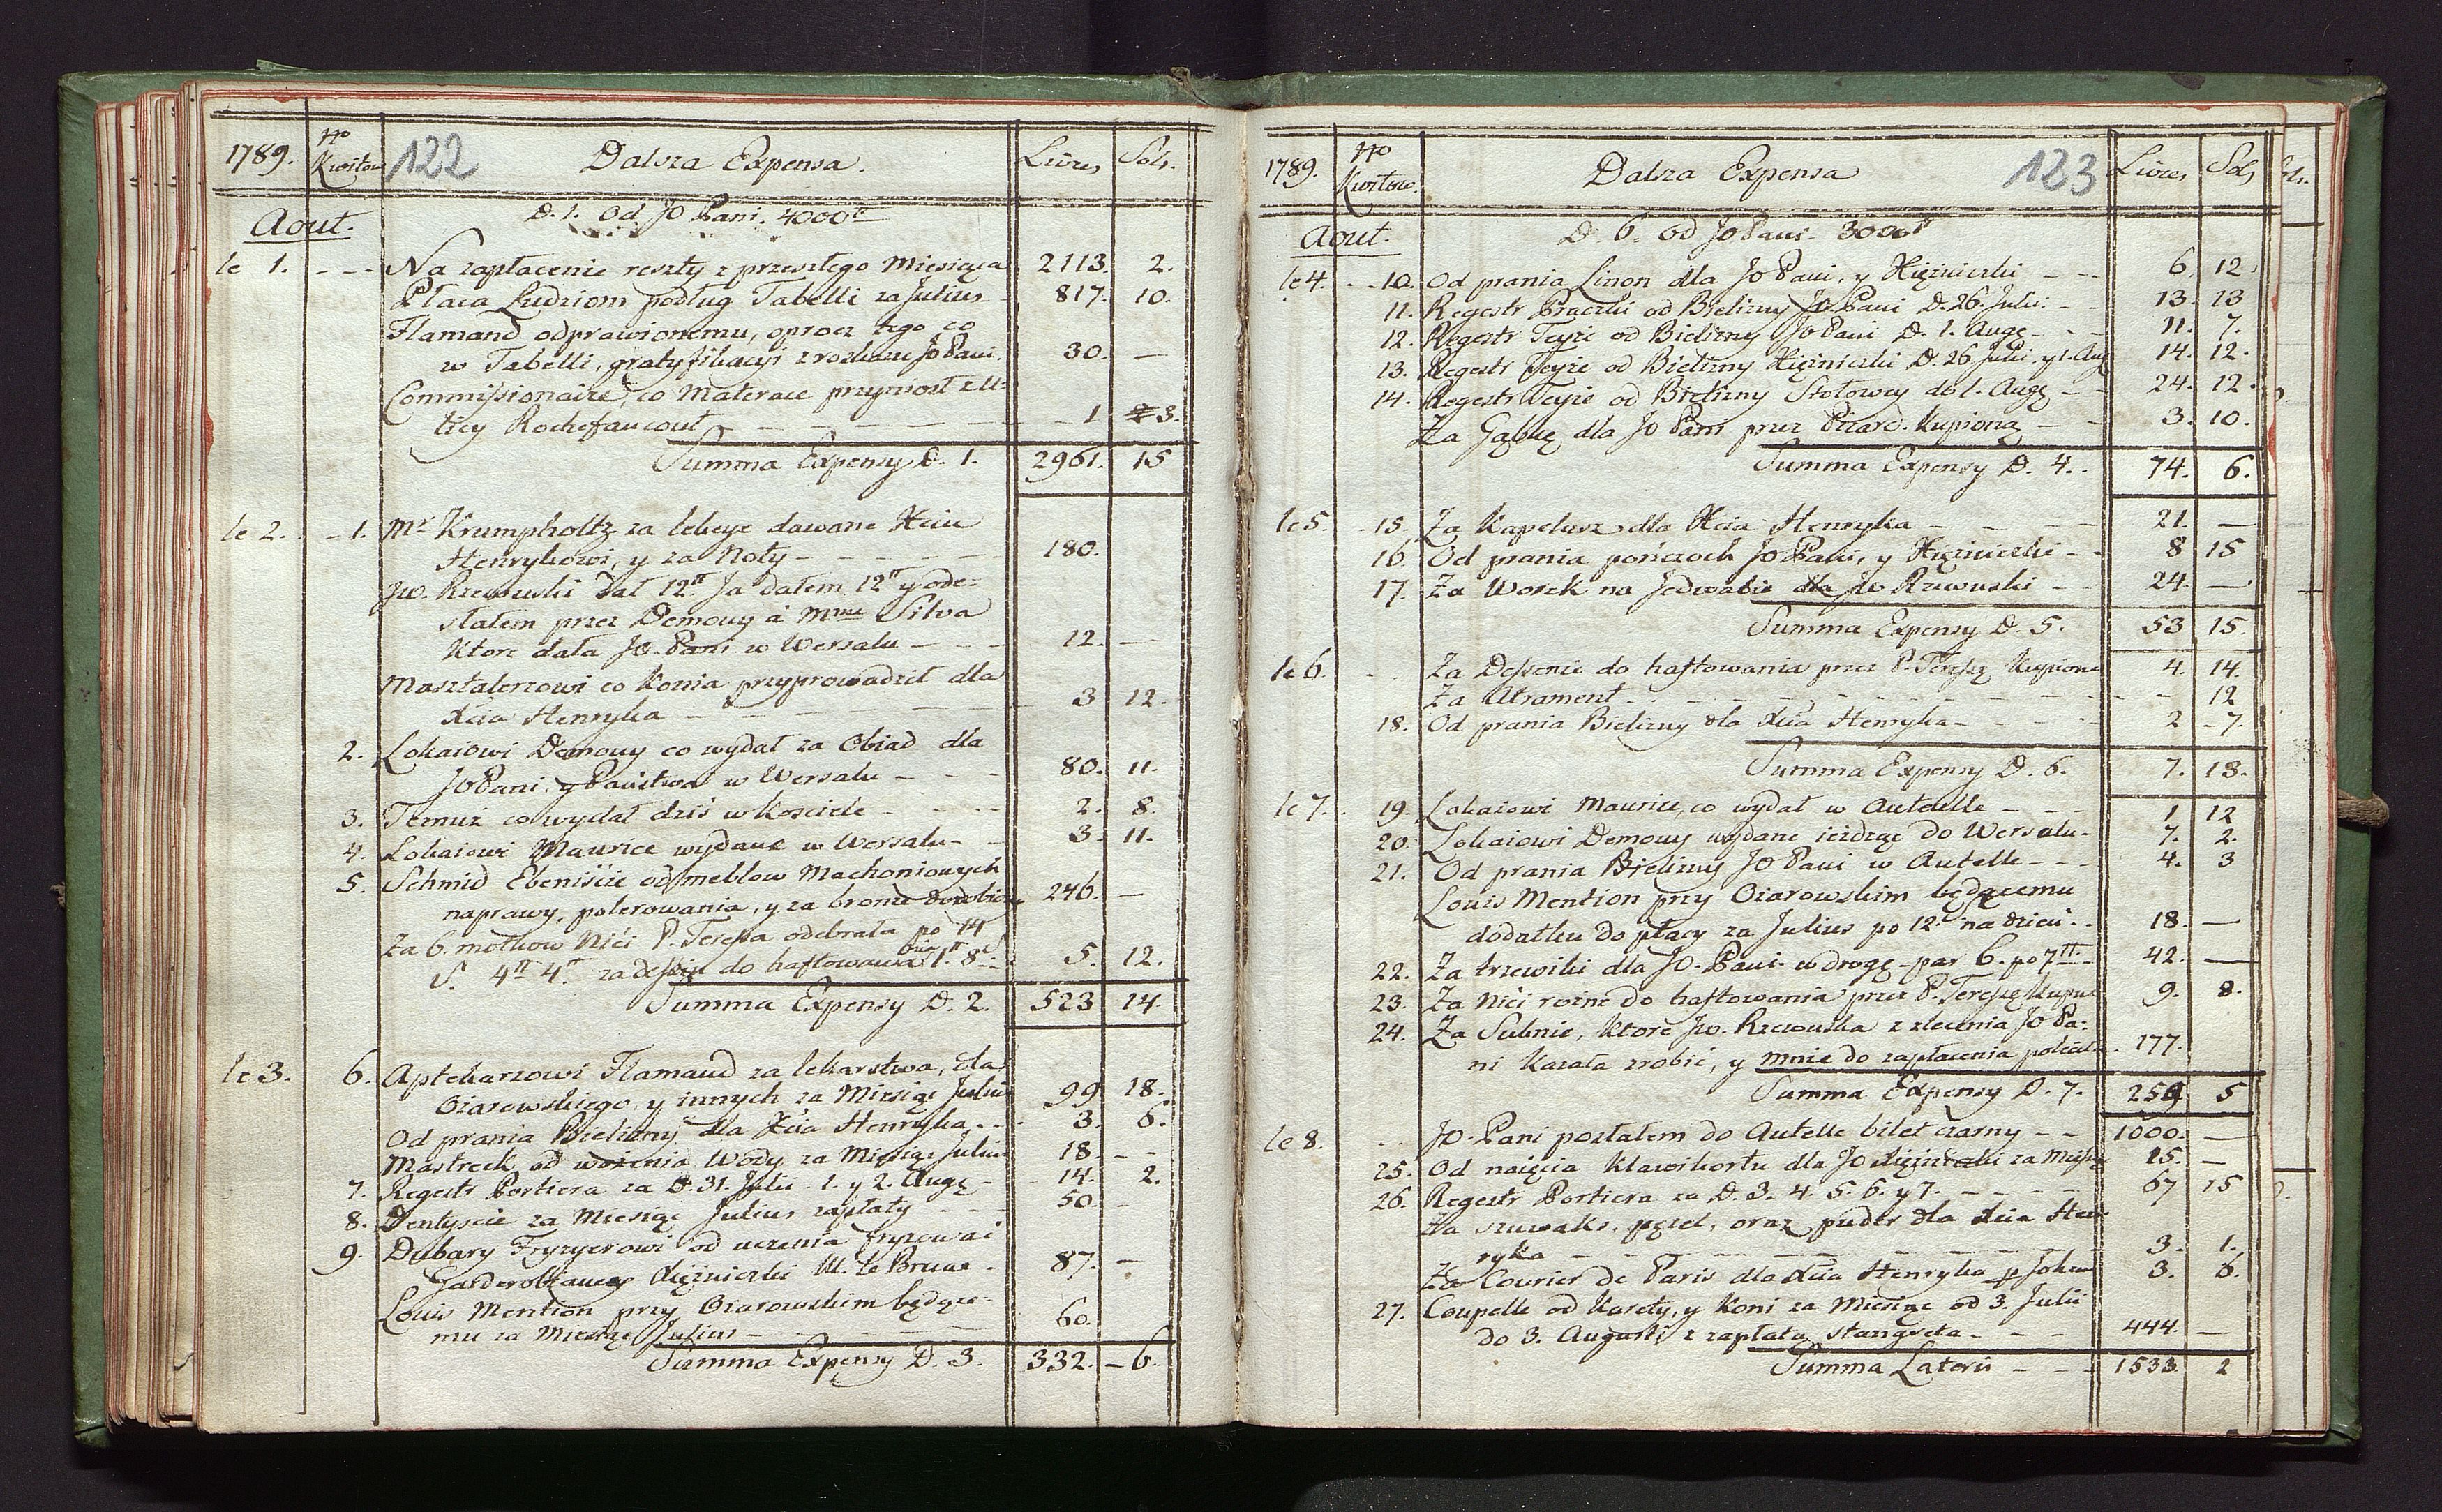 1789. No Kwitow 122 Dalsza Expensa. Livres Sols.
Aout. D. 1. Od JO Pani. 4000tt
le 1. - - - Na zapłacenie reszty z przeszłego Miesiąca 2113. 2.
Płaca Ludziom podług Tabelli za Julius - 817. 10.
Flamand odprawionemu, oprocz tego co
w Tabelli, gratyfikacyi z rozkazu Jo Pani. 30. —
Commissionaire, co Materace przyniosł z U-
licy Rochefaucout — — — 1 3.
Summa Expensy D. 1. 2961. 15
le 2. - 1. Mr Krumpholtz za lekcye dawane Xciu
Henrykowi, y za Noty — — — 180.
Jw. Rzewuski dał 12tt Ja dałem 12tt y ode-
słałem przez Demouy à Mme Silva
Ktore dała JO. Pani w Wersalu — — 12. —
Masztalerzowi co Konia przyprowadził dla
Xcia Henryka — — — 3 12.
2. Lokaiowi Demouy co wydał za Obiad dla
JO Pani, y Państwa w Wersalu — — 80. 11.
3. Temuż co wydał dziś w Kosciele — — 2. 8.
4. Lokaiowi Maurice wydane w Wersalu - - 3. 11.
5. Schmid Ebeniście od meblow Machoniowych
naprawy, polerowania, y za bronzu 246. —
Za 6. motkow Nici P. Teressa odebrała po 14
S. 4tt 4s za desein do haftowania 1tt 8s 5. 12.
Summa Expensy D. 2. 523 14.
le 3. 6. Aptekarzowi Flamand za lekarstwa, dla
Oiarowskiego, y innych za Miesiąc Julius 99 18.
Od prania Bielizny dla Xcia Henryka . . 3. 6.
Mastreck od wożenia Wody za Miesiąc Julius 18. - -
7. Regestr Portiera za D. 31. Julii 1. y 2. Augę - 14. 2.
8. Dentyscie za Miesiąc Julius zapłaty - - 50. -
9. Dubary Fryzyerowi od uczenia fryzować
Garderobianey Xiężniczki M. le Brune . 87. -
Louis Mention przy Oiarowskim będące-
mu za Miesiąc Julius — — — 60.
Summa Expensy D. 3. 332. - 6.
1789. No Kwitow. Dalsza Expensa 123 Livres Sols
Aout. D. 6. od Jo Pani 3000tt
le 4. - - 10. Od prania Linon dla Jo Pani, y Xiężniczki - - 6. 12.
11. Regestr Praczki od Bielizny Jo Pani D. 26. Julii - - 13. 13
12. Regestr Teyże od Bielizny Jo Pani D. 1. Augę - - 11. 7.
13. Regestr Teyże od Bielizny Xiężniczki D. 26 Julii. y 1. Aug 14. 12.
14. Regestr Teyże od Bielizny Stołowey do 1. Augę - - 24. 12.
Za Gąbkę dla Jo Pani przez Picard. Kupioną - - 3. 10.
Summa Expensy D. 4. . 74. 6.
le 5. - 15. Za Kapelusz dla Xcia Henryka — — — 21. —
16. Od prania pończoch Jo Pani, y Xiężniczki - - 8 15
17. Za Worek na Jedwabie dla Jw Rzewuski - - 24. —
Summa Expensy D. 5. 53 15.
le 6. . . Za Dessenie do haftowania przez P. Teressę Kupione 4. 14.
Za Atrament . . — — — 12
18. Od prania Bielizny dla Xcia Henryka - - - 2 - 7.
Summa Expensy D. 6. 7. 13.
le 7. . 19. Lokaiowi Maurice, co wydał w Auteulle - - - 1 12
20. Lokaiowi Demouy wydane ieżdżąc do Wersalu - 7. 2.
21. Od prania Bielizny JO Pani w Autelle - - - 4. 3
Louis Mention przy Oiarowskim będącemu
dodatku do płacy za Julius po 12s na dzień . . 18. —
22. Za trzewiki dla JO. Pani w drogę - par 6. po 7tt - 42. —
23. Za Nici rożne do haftowania przez P. Teressę Kupne 9. 8.
24. Za Suknie, Ktore Jw. Rzewuska z zlecenia JO Pa-
ni Kazała zrobić, y mnie do zapłacenia poleciła . 177.
Summa Expensy D. 7. 259 5
le 8. . . JO. Pani posłałem do Autelle bilet czarny - - 1000. —
25. Od naięcia Klawikortu dla JO Xiężniczki za Miesiąc 15. —
26. Regestr Portiera za D. 3. 4. 5. 6. y 7. - - - 67 15
Za szuwaks, pęzel, oraz puder dla Xcia Hen-
ryka — — — 3. 1.
Za Courier de Paris dla Xcia Henryka p Johan 3. 6.
27. Coupelle od Karety, y Koni za Miesiąc od 3. Julii
do 3. Augusti z zapłatą stangreta . - - - 444. —
Summa Lateris - - - 1533 2